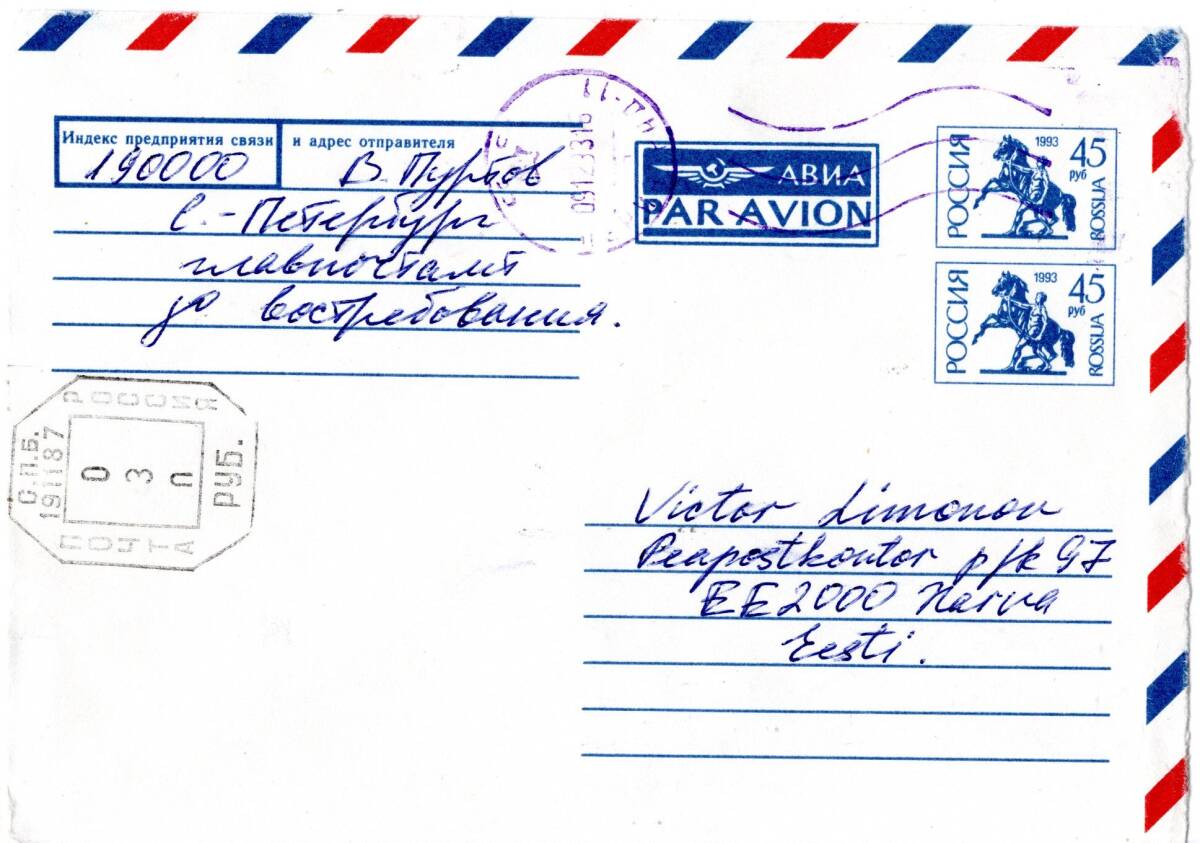 Индекс предприятия связи
и адрес отправителя
190000
В. Пурбов
С.-Петербург
главпочтамт
до востребования.
АВИА
PAR AVION
РОССИЯ
1993
45
руб
ROSSIJA
РОССИЯ
1993
45
руб
ROSSIJA
РОССИЯ
С.П.Б.
191187
РУБ.
ПОЧТА
Victor Limonov
Peapostkontor p/k 97
EE2000 Narva
Eesti.